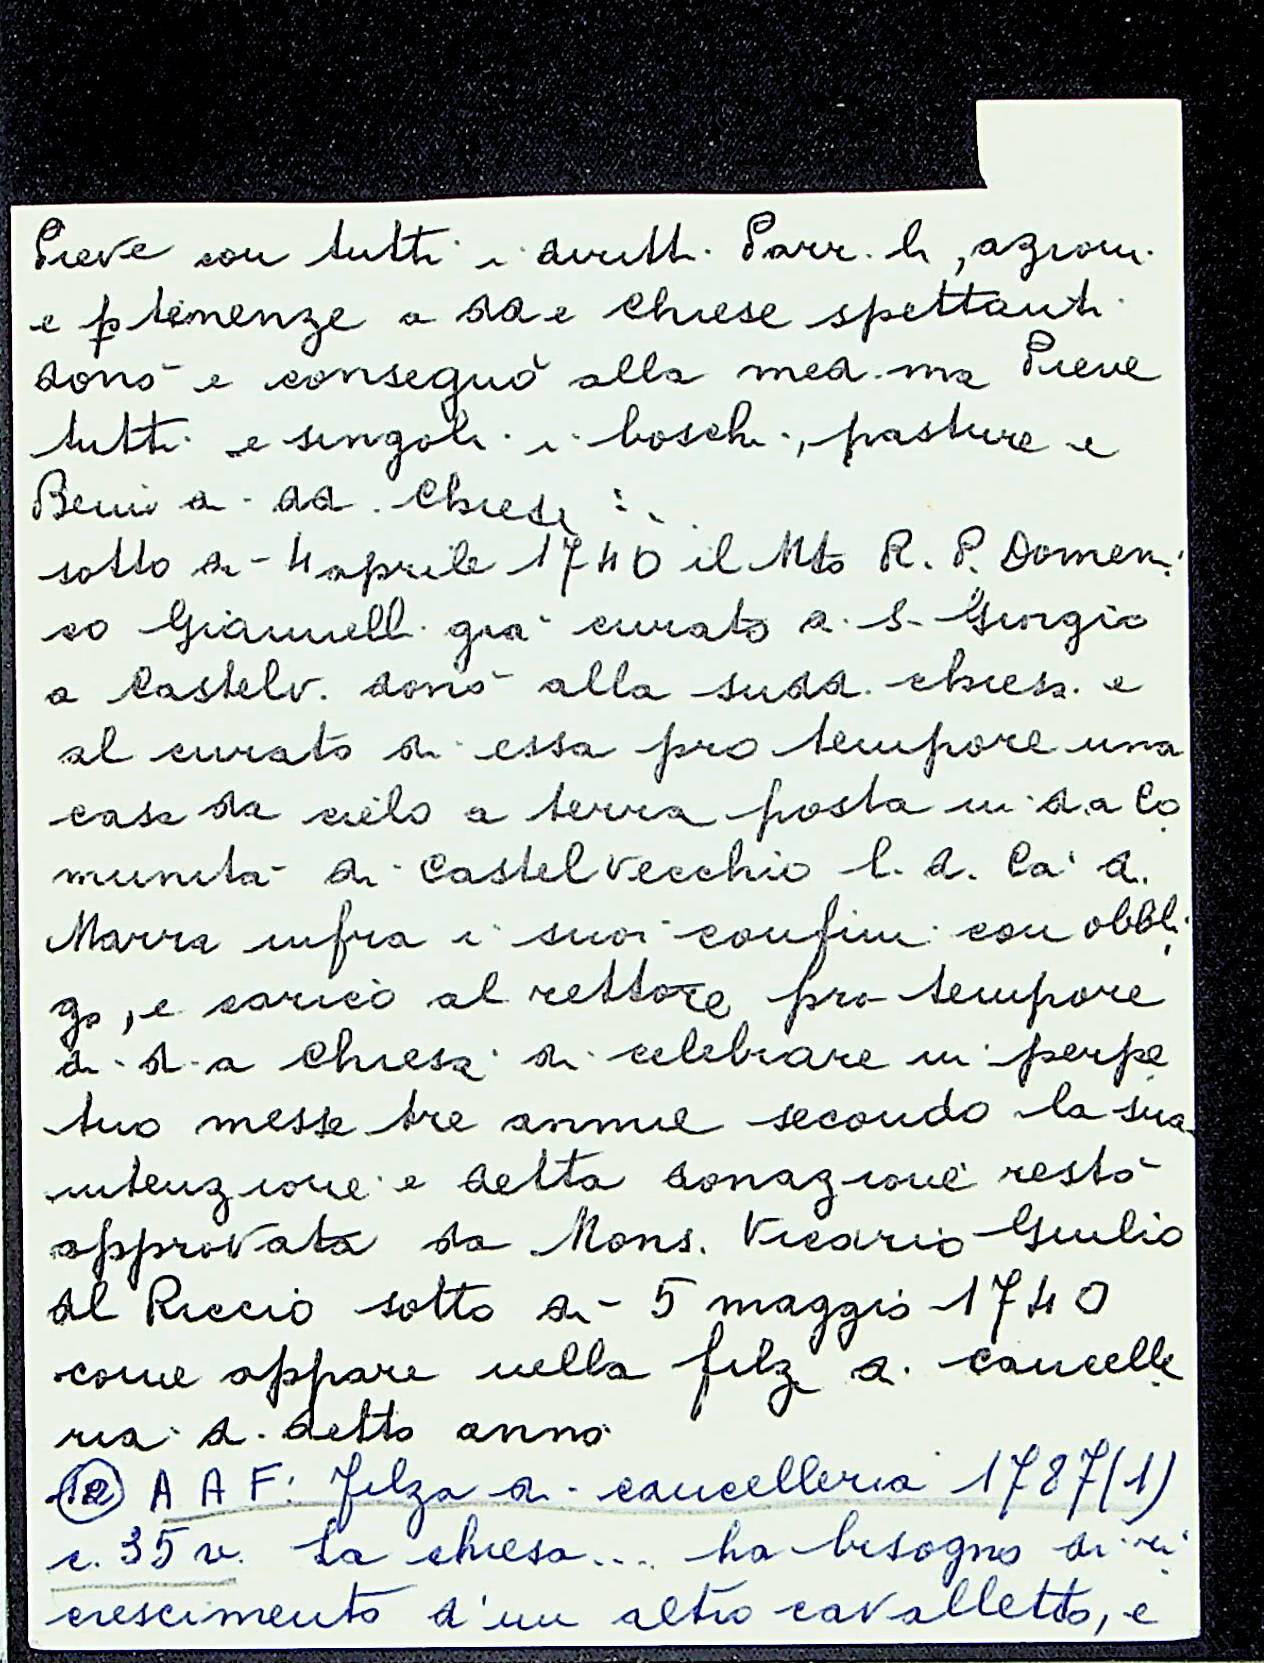 Pieve con tutti i diritti Parr.li, azioni
e ptenenze a dde Chiese spettanti
donò e consegnò alla med.ma Pieve
tutti e singoli i boschi, pasture e
Beni di dd. Chiese :..
sotto dì 4 aprile 1740 il Mto R. P. Domeni
co Giannelli già curato di S. Giorgio
a Castelv. donò alla sudd. chiesa e
al curato di essa pro tempore una
casa da cielo a terra posta in d.a Co
munità di Castelvecchio l. d. Ca' di
Marra infra i suoi confini con obbli
go, e carico al rettore pro tempore
di d.a Chiesa di celebrare in perpe
tuo messe tre annue secondo la sua
intenzione e detta donazione restò
approvata da Mons. Vicario Giulio
del Riccio sotto dì 5 maggio 1740
come appare nella filza di cancelle
ria di detto anno
(12) A A F: Filza di cancelleria 1787(1)
c. 35 v. La chiesa.... ha bisogno di ri
crescimento d'un altro cavalletto, e